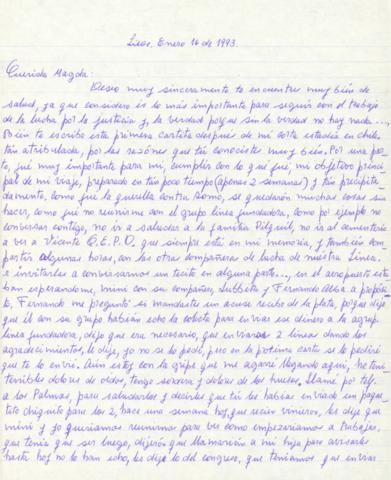 Enero 16 de 1993.
Querida Magda:
Deseo muy sinceramente te encuentres muy bien de
salud, ya que considero es lo más importante para seguir con el trabajo
de la lucha por la justicia y la verdad porque sin la verdad no hay nada...,
Bién te escribo esta primera cartita después de mi corta estadía en chile,
tán atribulada, por las razónes que tú conociste muy bién. Por una par-
te, fué muy importante para mi, cumplir con lo que fué, mi objetivo princi-
pal de mi viaje, preparado en tán poco tiempo (apenas 2 semanas) y tán precipita-
damente, como fué la querella contra Romo, se quedarón muchas cosas sin
hacer, como fué no reunirme con el grupo línea fundadora, como por ejemplo no
conversar contigo, no ir a saludar a la familia no ir al cementerio
a ver a Vicente Q.E.P.D. que siempre está en mi memoria, y también com-
partir algunas horas, con las otras compañeras de lucha de nuestra Línea,
e invitarlas a conversarnos un tecito en alguna parte..., en el aeropuerto esta-
ban esperandome, mimi con su compañero, y Fernando Alba a propósi-
to, Fernando me preguntó si mandaste un acuse recibo de la plata, porque dijo
que él con su grupo habían echo la colecta para enviar ese dinero a la agrup.
línea fundadora, dijo que era necesario, que enviaras 2 líneas dando los
agradecimientos, le dije, yo no se lo pedí, pero en la próxima carta se lo pediré
que te lo envíe. Aún estoy con la gripe que me agarré llegando aquí, he tení-
terribles dolores de oídos, tengo sordera y dolores de los huesos. Llamé por telf.
a los Palmas, para saludarlos y decirles que tú les habías enviado un paque-
tito chiquito para los 2, hace una semana hoy, que recién vinieron, les dije que
mimi y yo queríamos reunirnos para ver como empezaríamos a trabajar,
que tenía que ser luego, dijerón que llamarían a mi hija para avisarles
hasta hoy no lo han echo, les dije lo del congreso, que teníamos que enviar